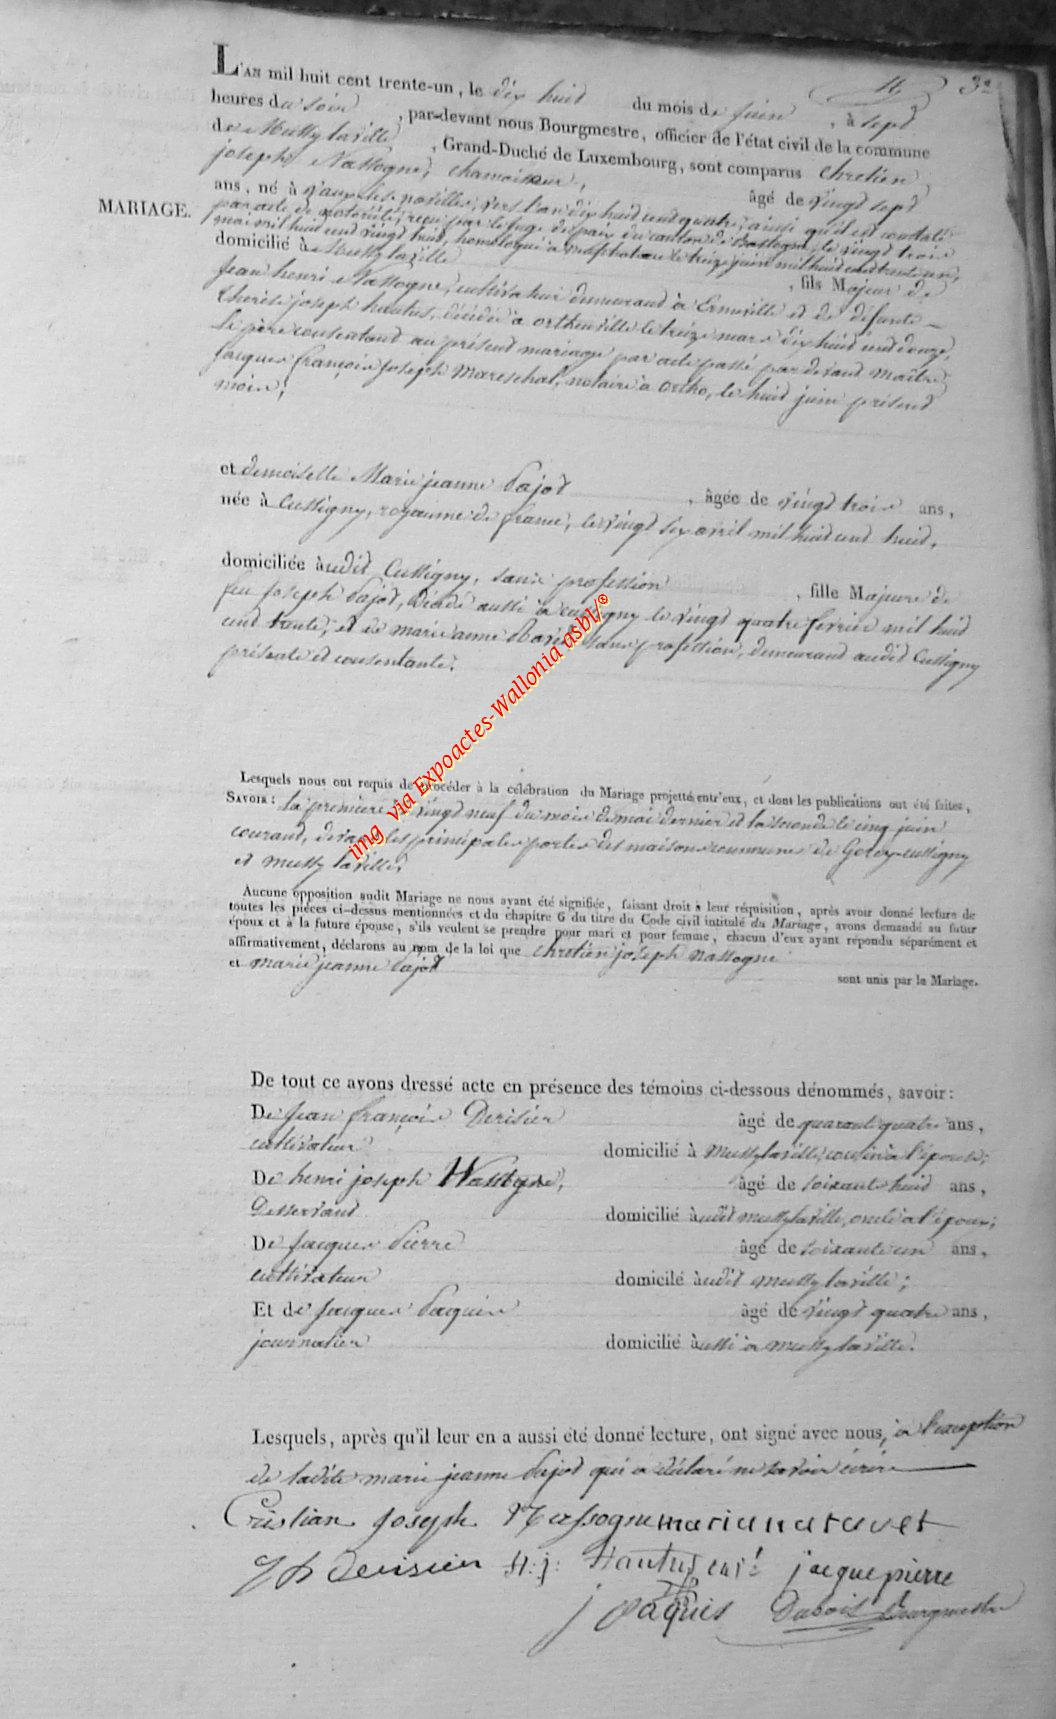 32
L'AN mil huit cent trente-un, le dix huit du mois de juin, à sept
heures du soir, par-devant nous Bourgmestre, officier de l'état civil de la commune
de Mussy laville, Grand-Duché de Luxembourg, sont comparus Chretien
joseph Nassogne, chamoiseur, âgé de vingt sept
MARIAGE.
ans, né à vaux les noseilles, vers l'an dix huit cent quatre, ainsi qu'il est constaté
par acte de notoriété, reçu par le juge de paix du canton de Bastogne, le vingt trois
mai mil huit cent vingt huit, homologué à le treize juin mil huit cent trente un,
domicilié à Mussy laville, fils Majeur de
Jean henri Nassogne, cultivateur demeurant à Ermeville et de défunte
therese joseph hautus, décédée à ortheuville le treize mars dix huit cent douze,
le père consentant au présent mariage par acte passé par devant maître
jacques françois joseph Mareschal, notaire à ortho, le huit juin présent
mois;
et demoiselle Marie jeanne pajot, âgée de vingt trois ans,
née à Cussigny, royaume de france, le vingt six avril mil huit cent huit,
domiciliée audit Cussigny, sans profession, fille Majeure de
feu joseph pajot, décédé aussi à cussigny le vingt quatre fevrier mil huit
cent trente, et de marie anne sans profession, demeurant audit Cussigny
présente et consentante.
Lesquels nous ont requis de procéder à la célébration du Mariage projetté entr'eux, et dont les publications ont été faites,
SAVOIR: la premiere le vingt neuf du mois de mai dernier et la seconde le cinq juin
courant, devant les principales portes des maisons communes de Gorcy-cussigny
et mussy laville.
Aucune opposition audit Mariage ne nous ayant été signifiée, faisant droit à leur réquisition, après avoir donné lecture de
toutes les pièces ci-dessus mentionnées et du chapitre 6 du titre du Code civil intitulé du Mariage, avons demandé au futur
époux et à la future épouse, s'ils veulent se prendre pour mari et pour femme, chacun d'eux ayant répondu séparément et
affirmativement, déclarons au nom de la loi que chretien joseph nassogne
et marie jeanne pajot
sont unis par le Mariage.
De tout ce avons dressé acte en présence des témoins ci-dessous dénommés, savoir:
De Jean françois Derisier âgé de quarante quatre ans,
cultivateur domicilié à Mussy laville, cousin à l'épouse;
De henri joseph âgé de soixante huit ans,
Desservant domicilié audit mussy laville, oncle à l'époux;
De Jacques pierre âgé de soixante un ans,
cultivateur domicilié audit mussy laville;
Et de Jacques paquis âgé de vingt quatre ans,
journalier domicilié aussi à mussy laville.
Lesquels, après qu'il leur en a aussi été donné lecture, ont signé avec nous, à l'exception
de ladite marie jeanne pajot qui a déclaré ne savoir écrire
Cristian Joseph Nassogne
H: j: Hautus jacque pierre
j paquis Dubois Bourgmestre
img via Expoactes-Wallonia asbl/®